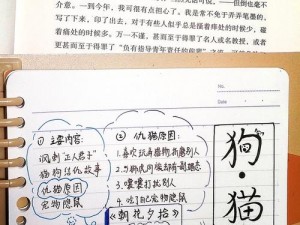 介意。一到今年，我可很有点担心了。我是常不免于弄弄笔墨的，
写了下来，印了出去，对于有些人似乎总是搔着痒处的时候少，碰
着痛处的时候多。万一不谨，甚而至于得罪了名人或名教授，或者
更甚而至于得罪了“负有指导青年责任的前辈”之流，可就危险已
①主要内容:
讽刺“正人君子”
猫狗结仇故事
仇猫原因
宠物隐鼠
②仇猫原因:
1.喜欢玩弄猎物折磨别人
3.嚎嚎打扰别人
4.吃了自己宠物隐鼠
《朝花夕拾》
狗·猫